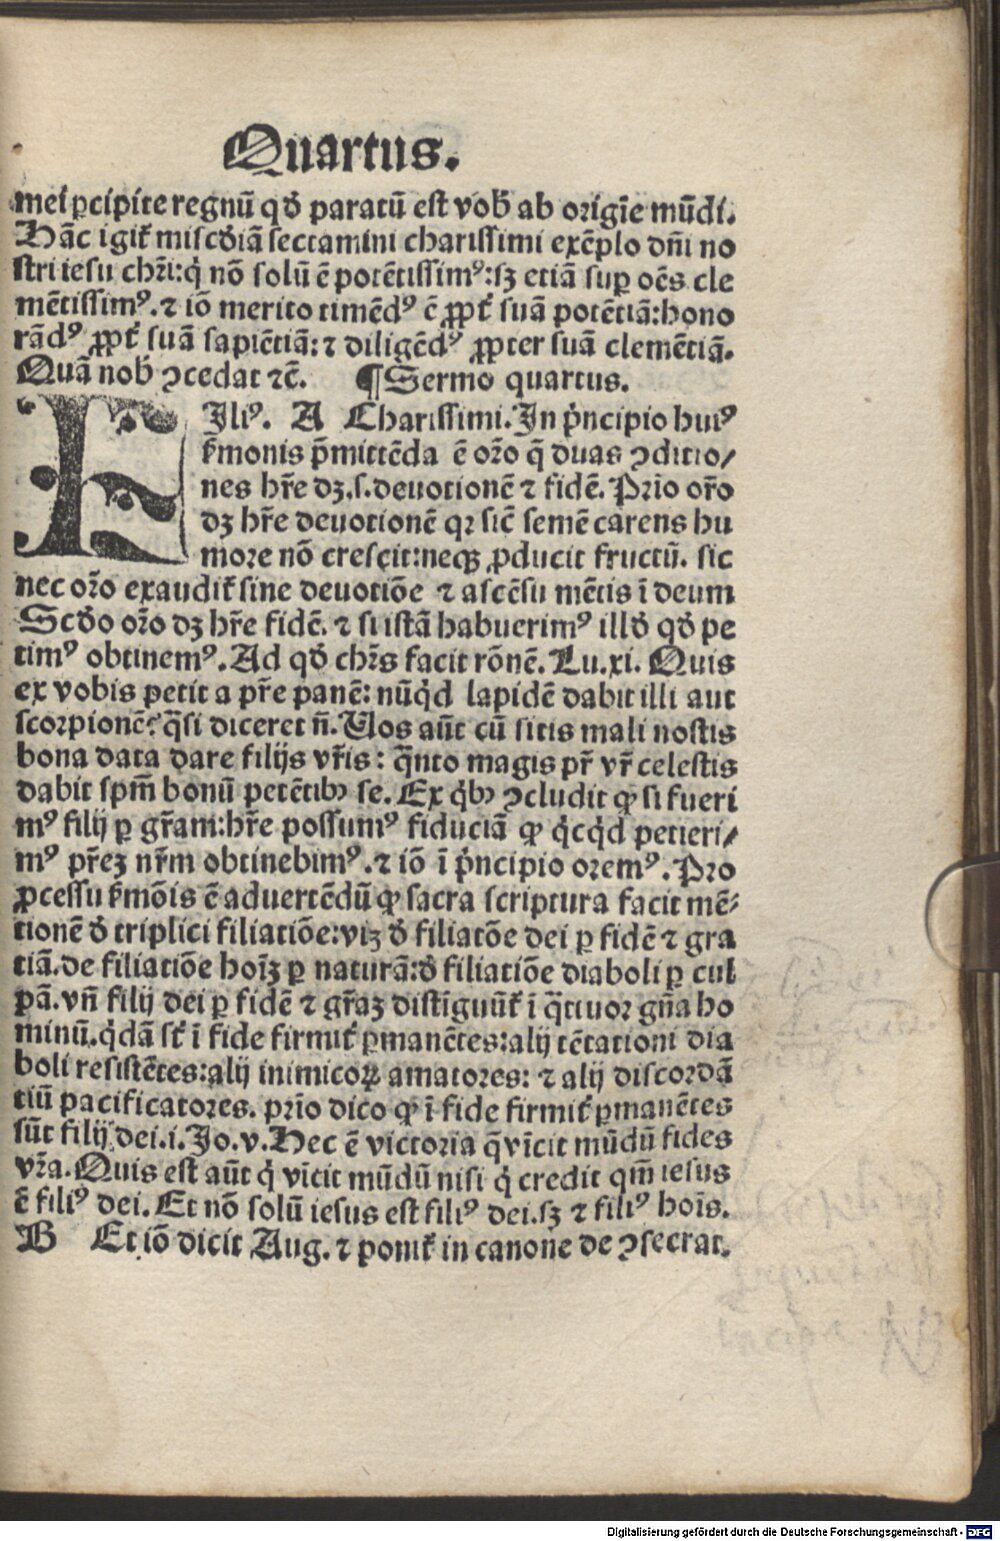 Quartus.
mei ꝑcipite regnū qđ paratū est vob̄ ab origīe mūdi.
Hāc igit᷑ miscđiā sectamini charissimi exēplo dn̄i no
stri iesu chr̄i: q̇ nō solū ē potētissimꝰ: sꝫ etiā suꝑ oēs cle
mētissimꝰ. ⁊ iō merito timēdꝰ ē ꝓpt᷑ suā potētiā: hono
rādꝰ ꝓpt᷑ suā sapiētiā: ⁊ diligēdꝰ ꝓpter suā clemētiā.
Quā nob̄ ꝯcedat ⁊c̄. ¶ Sermo quartus.
FIliꝰ. A Charissimi. In pͥncipio huiꝰ
ẜmonis p̄mittēda ē or̄o q̄ duas ꝯditio/
nes hr̄e dꝫ. s. deuotionē ⁊ fidē. Prīo or̄o
dꝫ hr̄e deuotionē qꝛ sic̄ semē carens hu
more nō crescit: neqꝫ ꝓducit fructū. sic
nec or̄o exaudit᷑ sine deuotiōe ⁊ ascēsu mētis ī deum
Scđo or̄o dꝫ hr̄e fidē. ⁊ si istā habuerimꝰ illđ qđ pe
timꝰ obtinemꝰ. Ad qđ chr̄s facit rōnē. Lu. xi. Quis
ex vobis petit a pr̄e panē: nūq̇d lapidē dabit illi aut
scorpionē? q̄si diceret n̄. Uos aūt cū sitis mali nostis
bona data dare filijs vr̄is: q̄nto magis pr̄ vr̄ celestis
dabit spm̄ bonū petētibꝫ se. Ex q̇bꝫ ꝯcludit ꝙ si fueri
mꝰ filij ꝑ gr̄am: hr̄e possumꝰ fiduciā ꝙ q̇cq̇d petieri/
mꝰ pr̄eꝫ nr̄m obtinebimꝰ. ⁊ iō ī pͥncipio oremꝰ. Pro
ꝓcessu ẜmōis ē aduertēdū ꝙ sacra scriptura facit mē-
tionē đ triplici filiatiōe: viꝫ đ filiatōe dei ꝑ fidē ⁊ gra
tiā. de filiatiōe hoīꝫ ꝑ naturā: đ filiatiōe diaboli ꝑ cul
pā. vn̄ filij dei ꝑ fidē ⁊ gr̄aꝫ distīguūt᷑ ī q̄tuor gn̄a ho
minū. q̇dā st᷑ ī fide firmit᷑ ꝑmanētes: alij tētationi dia
boli resistētes: alij inimicoꝝ amatores: ⁊ alij discordā
tiū pacificatores. prīo dico ꝙ ī fide firmit᷑ ꝑmanētes
sūt filij dei. i. Jo. v. Hec ē victoria q̄ vīcit mūdū fides
vr̄a. Quis est aūt q̇ vīcit mūdū nisi q̇ credit qm̄ iesus
ē filiꝰ dei. Et nō solū iesus est filiꝰ dei. sꝫ ⁊ filiꝰ hoīs.
B Et iō dicit Aug. ⁊ ponit᷑ in canone de ꝯsecrat.
Digitalisierung gefördert durch die Deutsche Forschungsgemeinschaft - DFG